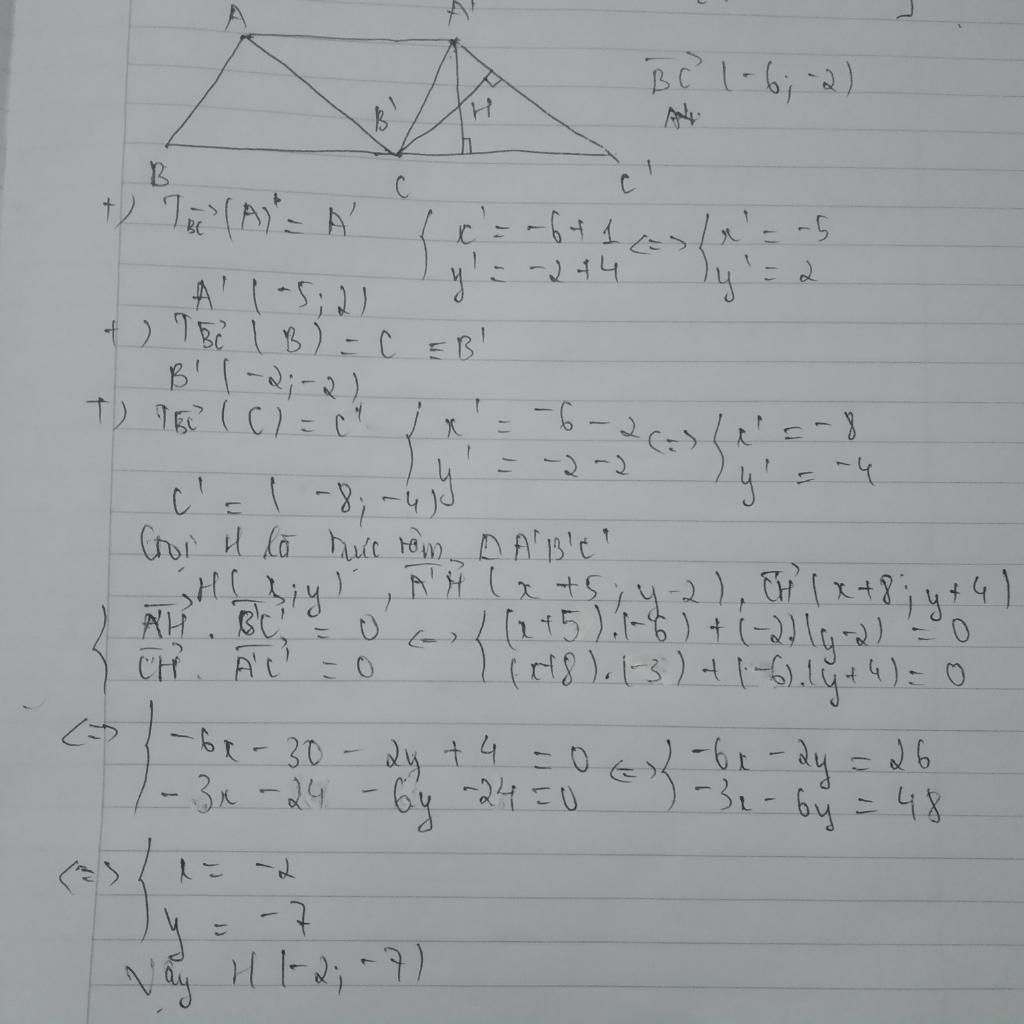 A
A'
B'
H
B
C
C'
BC→ (-6; -2)
+) T BC→ (A) = A' { x' = -6+1 <=> { x' = -5
y' = -2+4 y' = 2
A' (-5; 2)
+) T BC→ (B) = C ≡ B'
B' (-2; -2)
+) T BC→ (C) = C' { x' = -6 - 2 <=> { x' = -8
y' = -2 - 2 y' = -4
C' = (-8; -4)
Gọi H là trực tâm Δ A'B'C'
H(x; y), A'H→ (x+5; y-2), CH→ (x+8; y+4)
{ A'H→ . BC'→ = 0 <=> { (x+5).(-6) + (-2)(y-2) = 0
CH→ . A'C'→ = 0 (x+8).(-3) + (-6).(y+4) = 0
<=> { -6x - 30 - 2y + 4 = 0 <=> { -6x - 2y = 26
-3x - 24 - 6y - 24 = 0 -3x - 6y = 48
<=> { x = -2
y = -7
Vậy H (-2; -7)